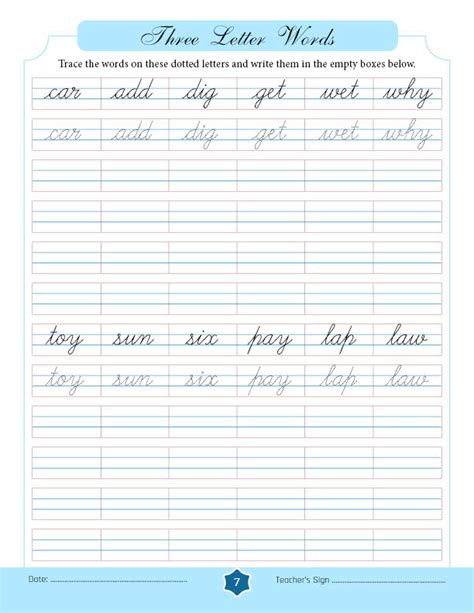 Three Letter Words
Trace the words on these dotted letters and write them in the empty boxes below.
car add dig get wet why
car add dig get wet why
toy sun six pay lap law
toy sun six pay lap law
Date: ........................ 7 Teacher's Sign ........................